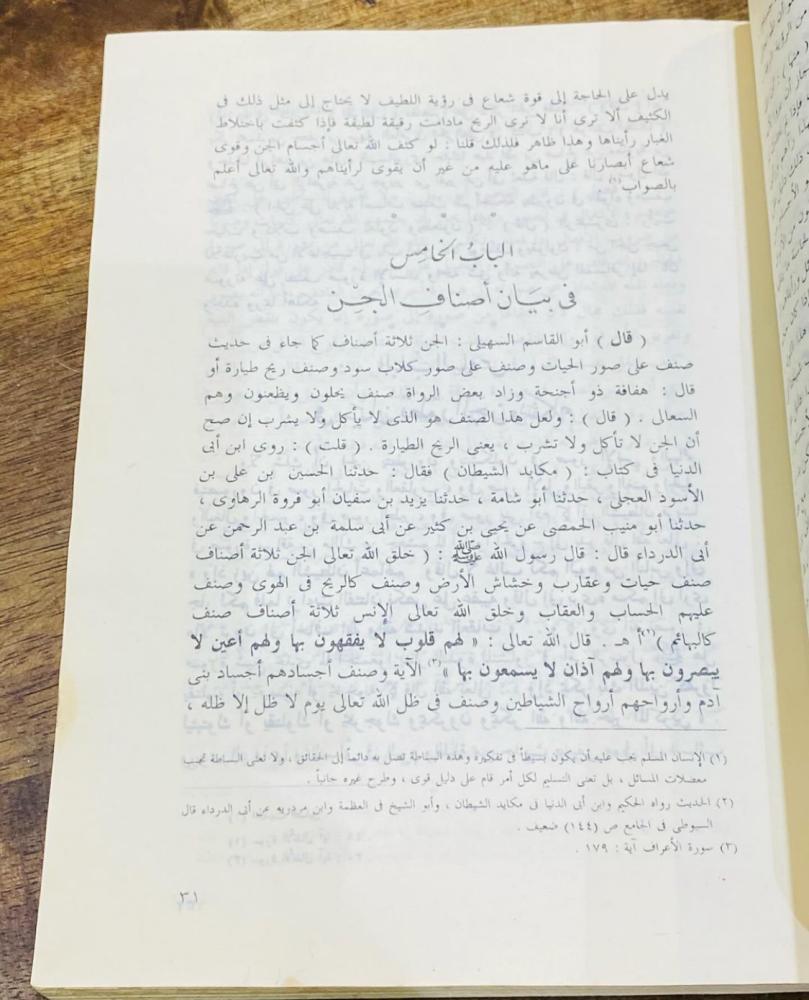 يدل على الحاجة إلى قوة شعاع فى رؤية اللطيف لا يحتاج إلى مثل ذلك فى
الكثيف ألا ترى أنا لا نرى الريح مادامت رقيقة لطيفة فإذا كثفت باختلاط
الغبار رأيناها وهذا ظاهر فلذلك قلنا : لو كثف الله تعالى أجسام الجن وقوى
شعاع أبصارنا على ماهو عليه من غير أن يقوى لرأيناهم والله تعالى أعلم
بالصواب(١) .
الباب الخامس
فى بيان أصناف الجن
( قال ) أبو القاسم السهيلى : الجن ثلاثة أصناف كما جاء فى حديث
صنف على صور الحيات وصنف على صور كلاب سود وصنف ريح طيارة أو
قال : هفافة ذو أجنحة وزاد بعض الرواة صنف يحلون ويظعنون وهم
السعالى . ( قال ) : ولعل هذا الصنف هو الذى لا يأكل ولا يشرب إن صح
أن الجن لا تأكل ولا تشرب ، يعنى الريح الطيارة . ( قلت ) : روى ابن أبى
الدنيا فى كتاب : ( مكايد الشيطان ) فقال : حدثنا الحسين بن على بن
الأسود العجلى ، حدثنا أبو شامة ، حدثنا يزيد بن سفيان أبو فروة الرهاوى ،
حدثنا أبو منيب الحمصى عن يحيى بن كثير عن أبى سلمة بن عبد الرحمن عن
أبى الدرداء قال : قال رسول الله ﷺ : ( خلق الله تعالى الجن ثلاثة أصناف
صنف حيات وعقارب وخشاش الأرض وصنف كالريح فى الهوى وصنف
عليهم الحساب والعقاب وخلق الله تعالى الإنس ثلاثة أصناف صنف
كالبهائم )(٢)أ هـ . قال الله تعالى : « لهم قلوب لا يفقهون بها ولهم أعين لا
يبصرون بها ولهم آذان لا يسمعون بها »(٣) الآية وصنف أجسادهم أجساد بنى
آدم وأرواحهم أرواح الشياطين وصنف فى ظل الله تعالى يوم لا ظل إلا ظله ،
(١) الإنسان المسلم يجب عليه أن يكون بسيطاً فى تفكيره وهذه البساطة تصل به دائماً إلى الحقائق ، ولا تعنى البساطة تجنب
معضلات المسائل ، بل تعنى التسليم لكل أمر قام على دليل قوى ، وطرح غيره جانباً .
(٢) الحديث رواه الحكيم وابن أبى الدنيا فى مكايد الشيطان ، وأبو الشيخ فى العظمة وابن مردويه عن أبى الدرداء قال
السيوطى فى الجامع ص (١٤٤) ضعيف .
(٣) سورة الأعراف آية : ١٧٩ .
٣١